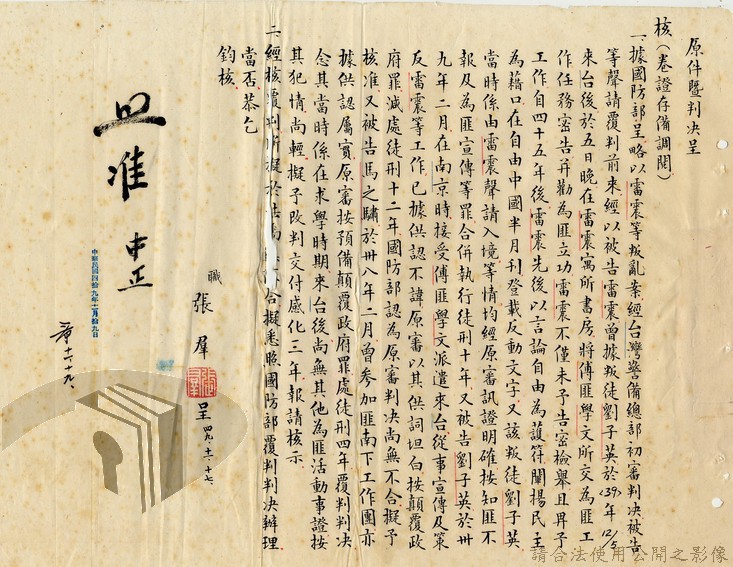 原件暨判決呈
核（卷證存備調閱）
一、據國防部呈略以雷震等叛亂案經台灣警備總部初審判決被告
等聲請覆判前來經以被告雷震曾據叛徒劉子英於39年12/5
來台後於五日晚在雷震寓所書房將傅匪學文所交為匪工
作任務密告并勸為匪立功雷震不僅未予告密檢舉且畀予
工作自四十五年後雷震先後以言論自由為護符闡揚民主
為藉口在自由中國半月刊登載反動文字又該叛徒劉子英
當時係由雷震聲請入境等情均經原審訊證明確按知匪不
報及為匪宣傳等罪合併執行徒刑十年又被告劉子英於卅
九年二月在南京時接受傅匪學文派遣來台從事宣傳及策
反雷震等工作已據供認不諱原審以其供詞坦白按顛覆政
府罪減處徒刑十二年國防部認為原審判決尚無不合擬予
核准又被告馬之驌於卅八年二月曾參加匪南下工作團亦
據供認屬實原審按預備顛覆政府罪處徒刑四年覆判判決
念其當時係在求學時期來台後尚無其他為匪活動事證按
其犯情尚輕擬予改判交付感化三年報請核示
二、經核覆判所擬於法尚合擬悉照國防部覆判判決辦理
當否恭乞
鈞核
職 張羣 呈 四九、十一、十七、
照准 中正
中華民國四拾九年十一月拾九日
十一、十九、
請合法使用公開之影像